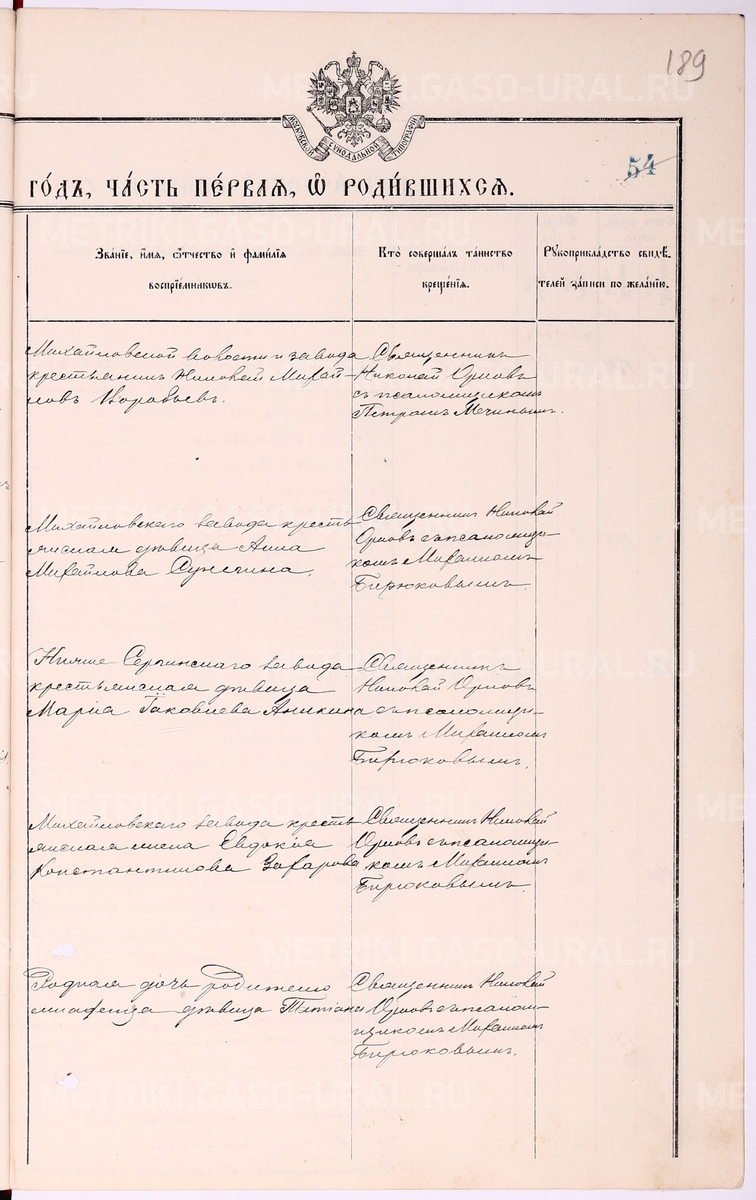 189
МОСКОВСКОЙ СѴНОДАЛЬНОЙ ТИПОГРАФІИ
54
ГО́ДЪ, ЧА́СТЬ ПЕ́РВАЯ, Ѡ҆ РОДИ́ВШИХСЯ.
Зва́нїе, и҆́мя, ѻ҆́тчество и҆ фами́лїя
воспрїе́мникѡвъ.
Кто̀ соверша́лъ та́инство
креще́нїя.
Рꙋкоприкла́дство свидѣ́-
телей за́писи по жела́нїю.
Михайловской волости и завода
крестьянинъ Николай Михай-
ловъ Воробьевъ.
Священникъ
Николай Орловъ
съ псаломщикомъ
Петромъ Мечинымъ.
Михайловскаго завода кресть
янская дѣвица Анна
Михайлова
Священникъ Николай
Орловъ съ псаломщи-
комъ Михаиломъ
Бирюковымъ.
Нижне Сергинскаго завода
крестьянская дѣвица
Марія Іаковлева Аникина
Священникъ
Николай Орловъ
съ псаломщи-
комъ Михаиломъ
Бирюковымъ.
Михайловскаго завода кресть
янская жена Евдокія
Константинова Захарова
Священникъ Николай
Орловъ съ псаломщи-
комъ Михаиломъ
Бирюковымъ.
Родная дочь родителю
младенца дѣвица Татіана
Священникъ Николай
Орловъ съ псалом-
щикомъ Михаиломъ
Бирюковымъ.
METRIKI.GASO-URAL.RU